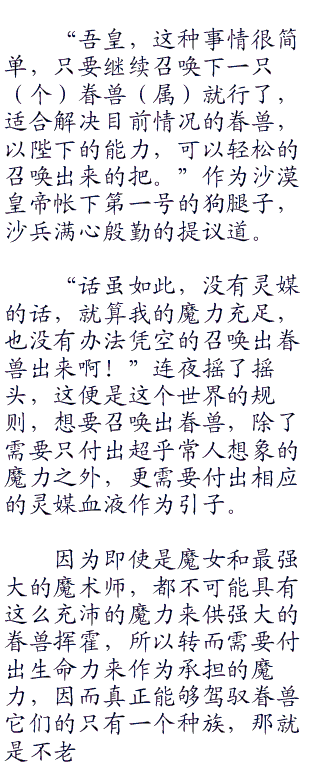 “吾皇，这种事情很简
单，只要继续召唤下一只
（个）眷兽（属）就行了，
适合解决目前情况的眷兽，
以陛下的能力，可以轻松的
召唤出来的把。”作为沙漠
皇帝帐下第一号的狗腿子，
沙兵满心殷勤的提议道。
“话虽如此，没有灵媒
的话，就算我的魔力充足，
也没有办法凭空的召唤出眷
兽出来啊！”连夜摇了摇
头，这便是这个世界的规
则，想要召唤出眷兽，除了
需要只付出超乎常人想象的
魔力之外，更需要付出相应
的灵媒血液作为引子。
因为即使是魔女和最强
大的魔术师，都不可能具有
这么充沛的魔力来供强大的
眷兽挥霍，所以转而需要付
出生命力来作为承担的魔
力，因而真正能够驾驭眷兽
它们的只有一个种族，那就
是不老